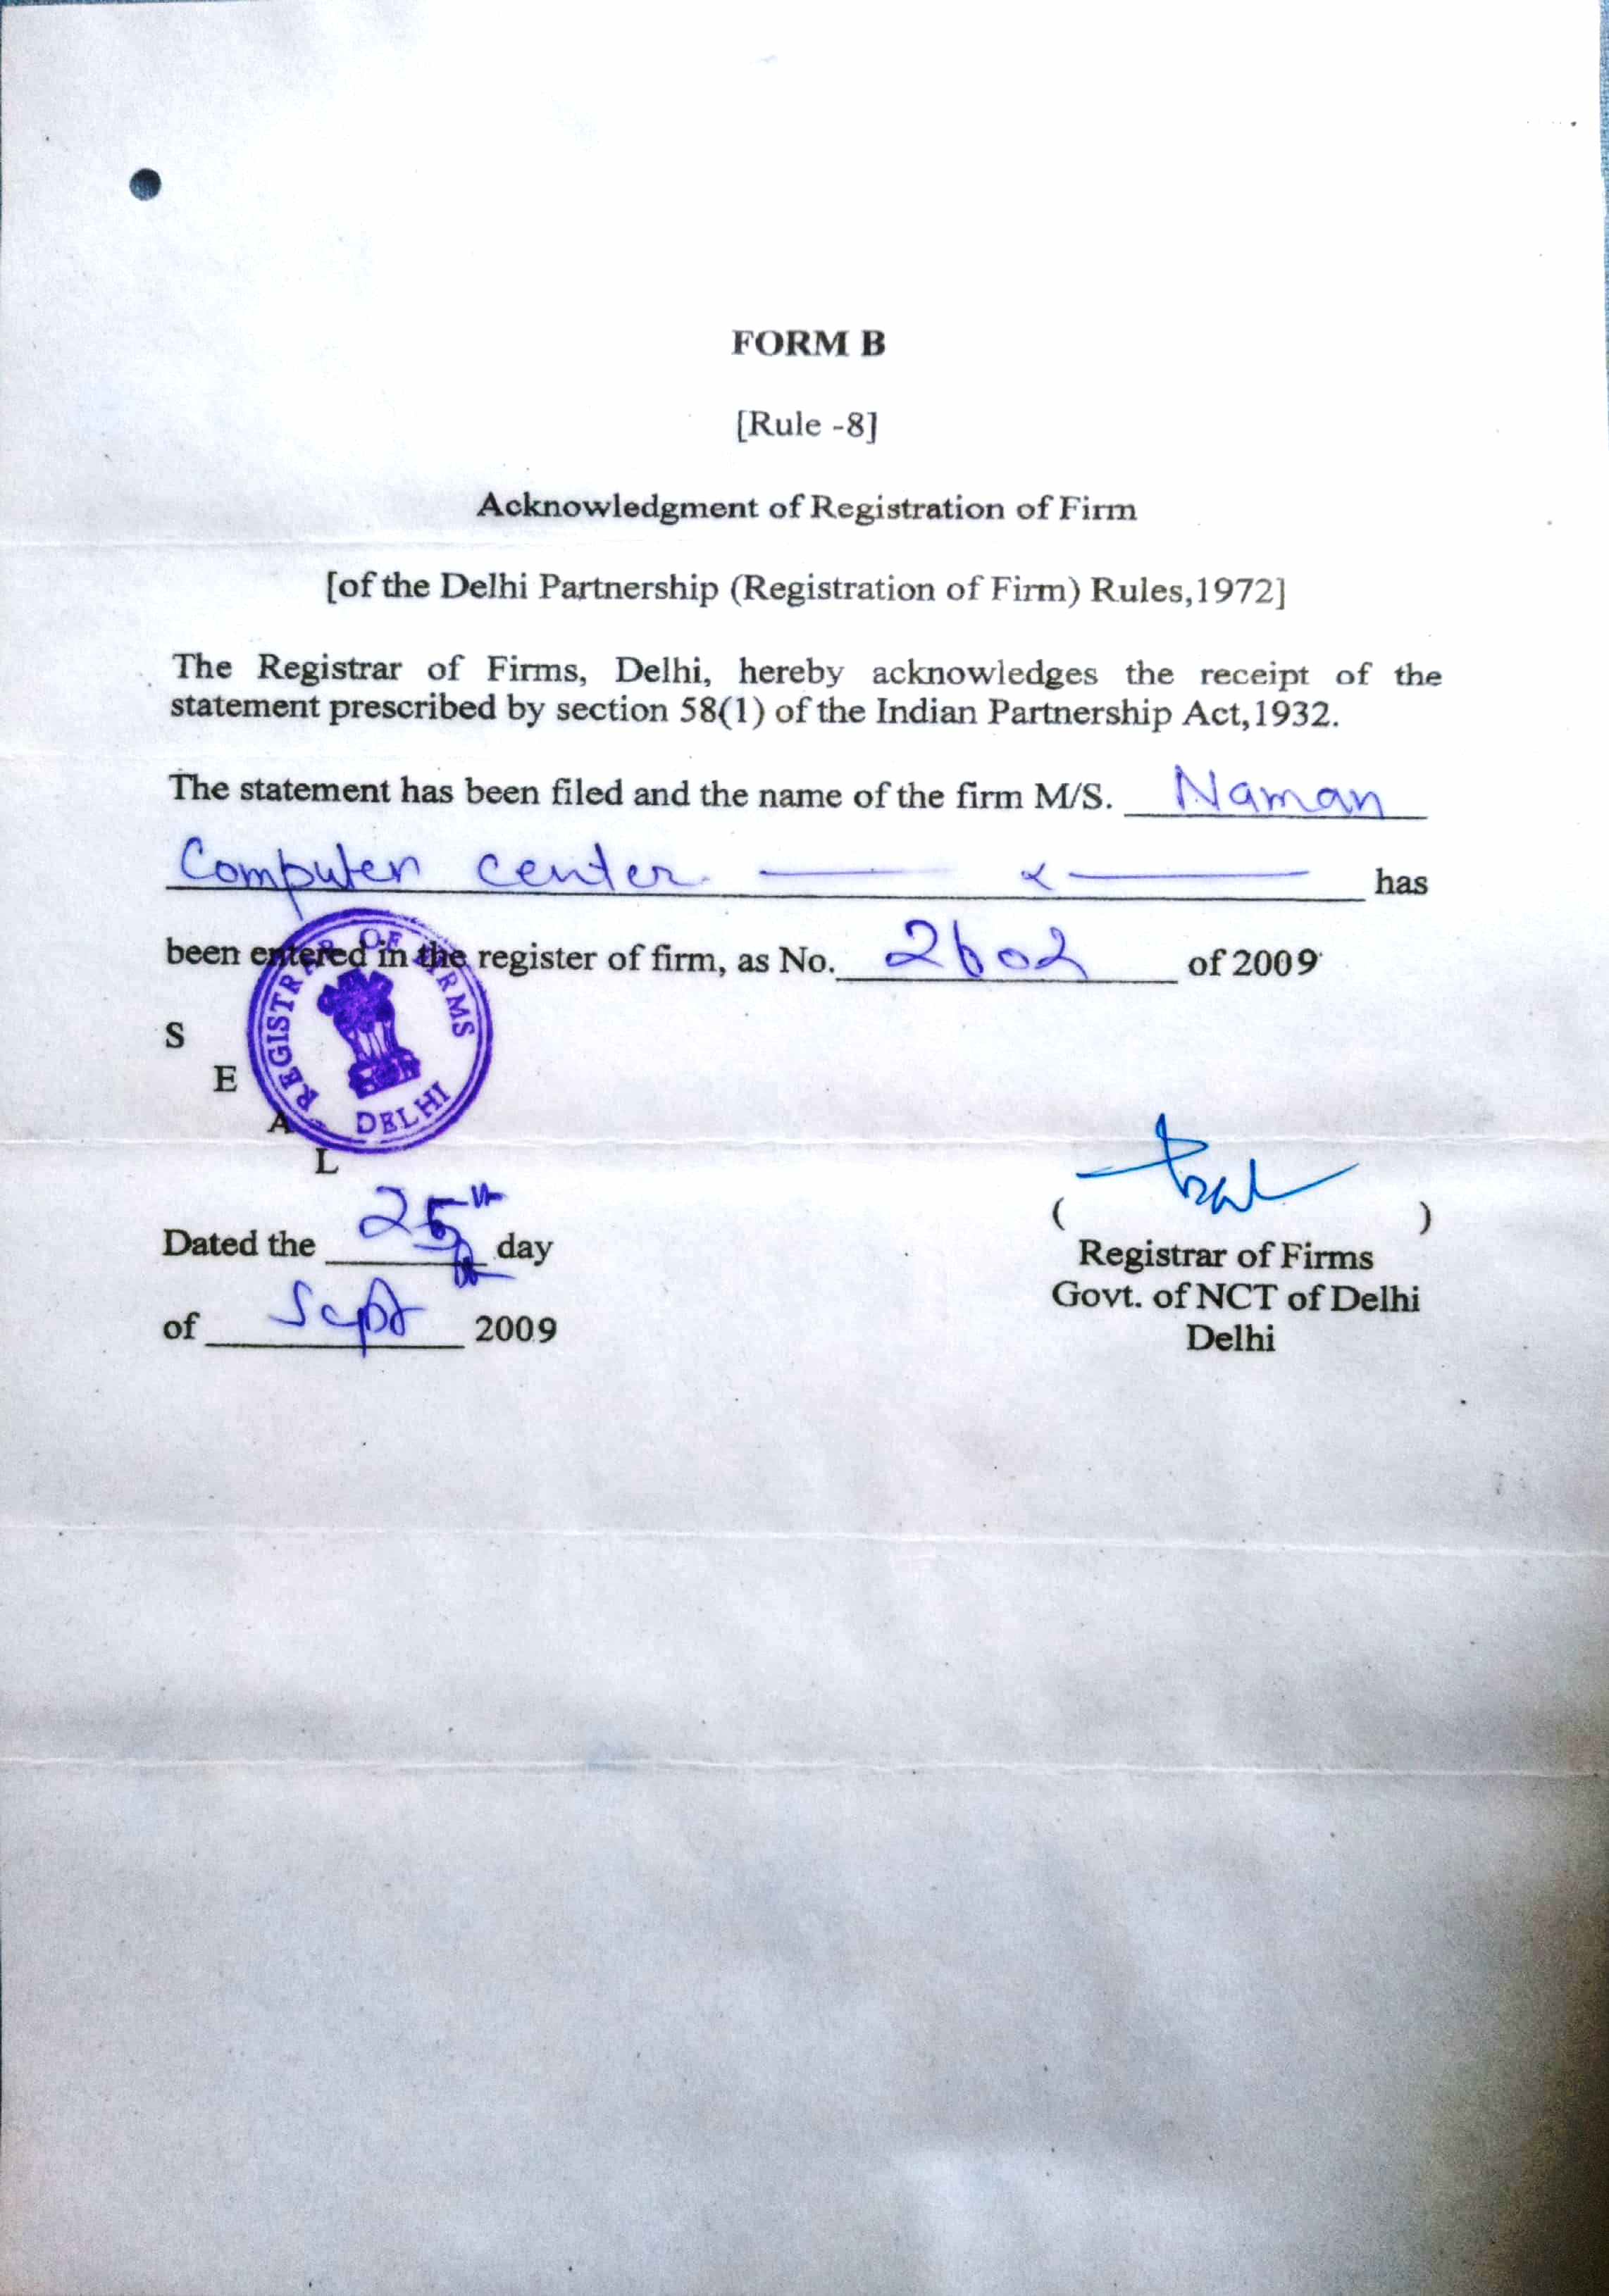 FORM B
[Rule -8]
Acknowledgment of Registration of Firm
[of the Delhi Partnership (Registration of Firm) Rules,1972]
The Registrar of Firms, Delhi, hereby acknowledges the receipt of the
statement prescribed by section 58(1) of the Indian Partnership Act,1932.
The statement has been filed and the name of the firm M/S. Naman
Computer center has
been entered in the register of firm, as No. 2602 of 2009
REGISTRAR OF FIRMS
DELHI
S
E
A
L
Dated the 25th day
of Sept 2009
( )
Registrar of Firms
Govt. of NCT of Delhi
Delhi